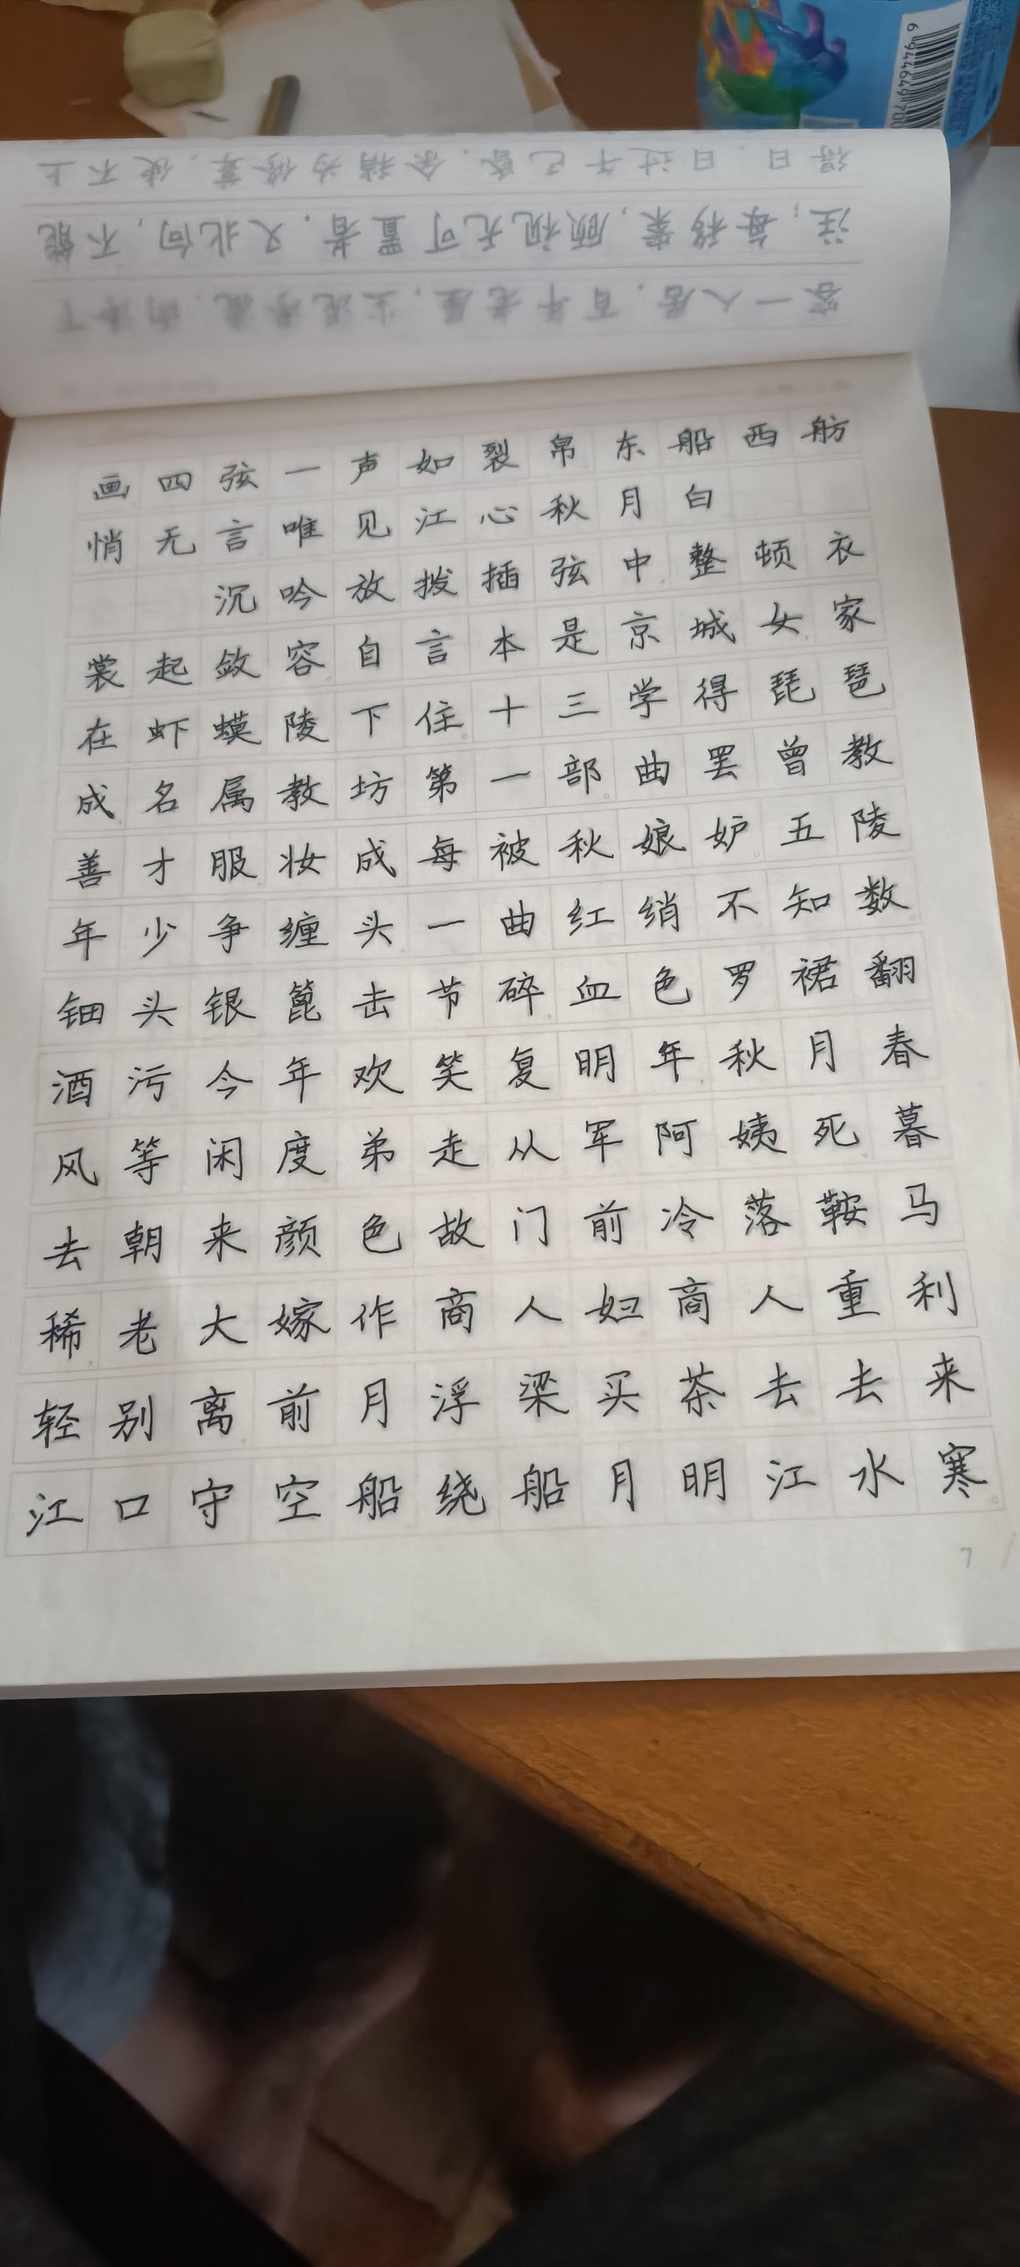 容一人居,百年老屋,尘泥渗漉,雨泽下
注;每移案,顾视无可置者.又北向,不能
得日.日过午已昏.余稍为修葺,使不上
画四弦一声如裂帛东船西舫
悄无言唯见江心秋月白
沉吟放拨插弦中整顿衣
裳起敛容自言本是京城女家
在虾蟆陵下住十三学得琵琶
成名属教坊第一部曲罢曾教
善才服妆成每被秋娘妒五陵
年少争缠头一曲红绡不知数
钿头银篦击节碎血色罗裙翻
酒污今年欢笑复明年秋月春
风等闲度弟走从军阿姨死暮
去朝来颜色故门前冷落鞍马
稀老大嫁作商人妇商人重利
轻别离前月浮梁买茶去去来
江口守空船绕船月明江水寒
7